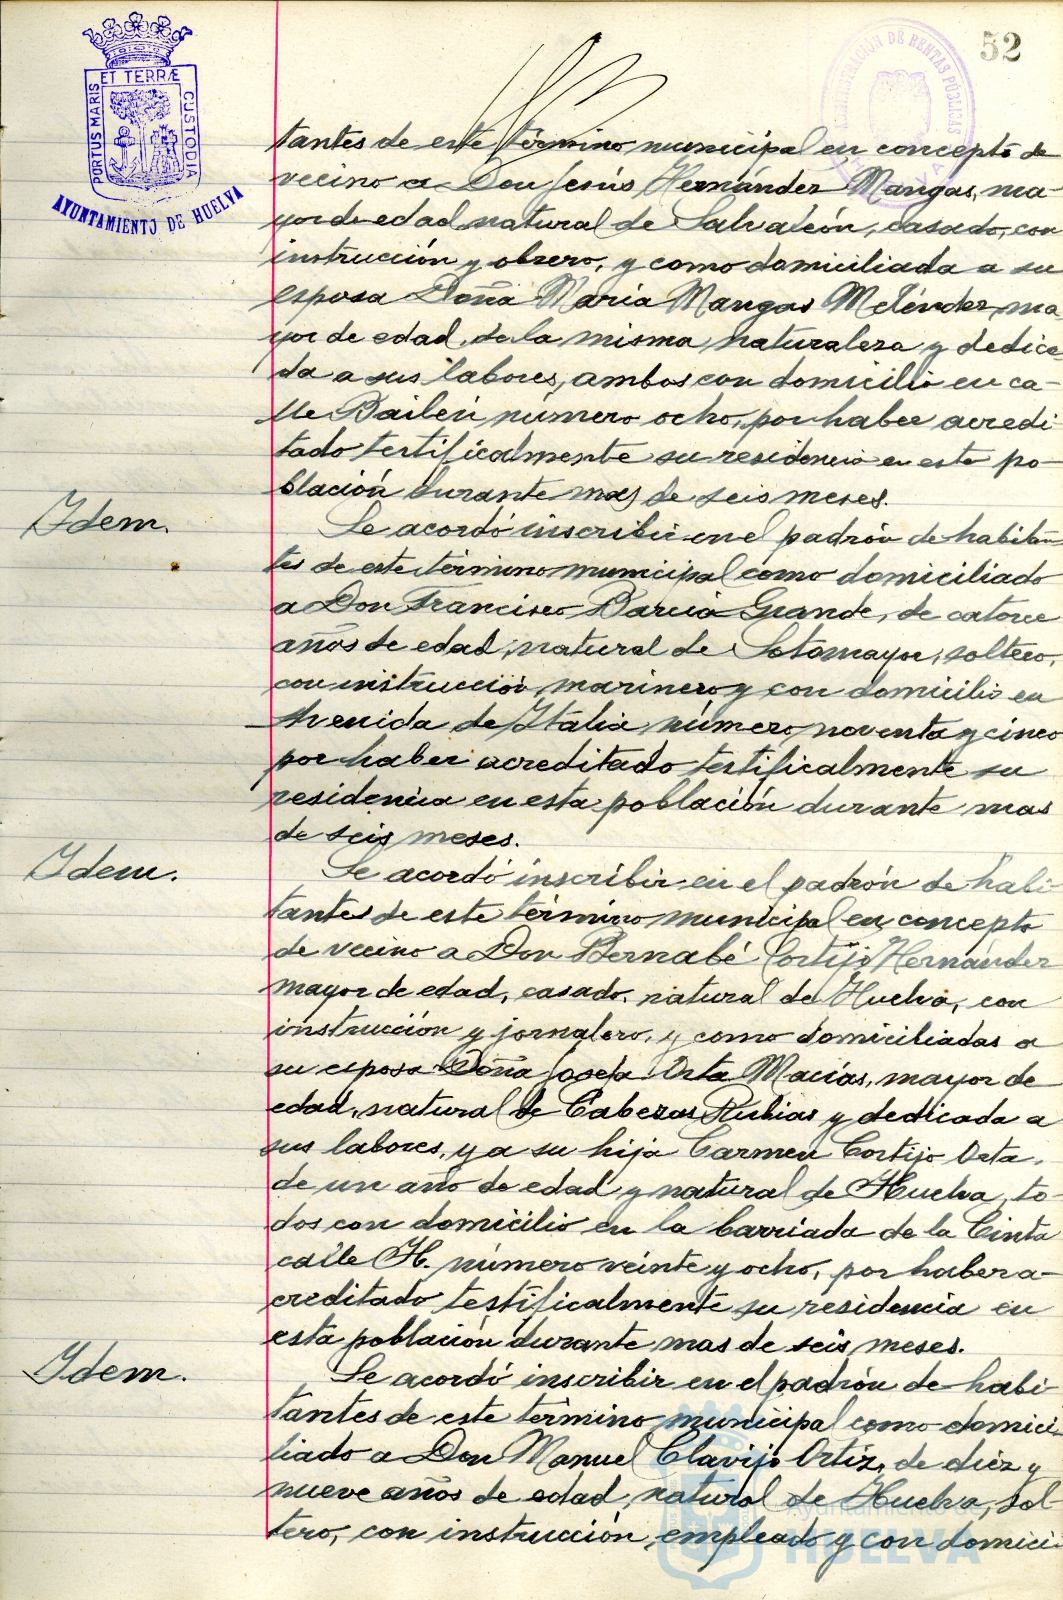 52
ET TERRÆ
PORTUS MARIS
CUSTODIA
AYUNTAMIENTO DE HUELVA
DE RENTAS PÚBLICAS
tantes de este término municipal en concepto de
vecino a Don Jesús Hernández Mangas, ma-
yor de edad natural de Salvaleón, casado, con
instrucción y obrero, y como domiciliada a su
esposa Doña María Mangas Meléndez, ma
yor de edad, de la misma naturaleza y dedica
da a sus labores, ambos con domicilio en ca-
lle Bailén número ocho, por haber acredi
tado testificalmente su residencia en este po-
blación durante mas de seis meses.
Idem.
Se acordó inscribir en el padrón de habitan
tes de este término municipal como domiciliado
a Don Francisco García Grande, de catorce
años de edad, natural de Sotomayor, soltero,
con instrucción, marinero y con domicilio en
Avenida de Italia número noventa y cinco
por haber acreditado testificalmente su
residencia en esta población durante mas
de seis meses.
Idem.
Se acordó inscribir en el padrón de habi-
tantes de este término municipal en concepto
de vecino a Don Bernabé Cortijo Hernández
mayor de edad, casado, natural de Huelva, con
instrucción y jornalero, y como domiciliadas a
su esposa Doña Josefa Orta Macías, mayor de
edad, natural de Cabezas Rubias y dedicada a
sus labores, y a su hija Carmen Cortijo Orta,
de un año de edad y natural de Huelva, to-
dos con domicilio en la barriada de la Cinta
calle H. número veinte y ocho, por haber a-
creditado testificalmente su residencia en
esta población durante mas de seis meses.
Idem.
Se acordó inscribir en el padrón de habi
tantes de este término municipal como domici-
liado a Don Manuel Clavijo Ortiz, de diez y
nueve años de edad, natural de Huelva, sol-
tero, con instrucción, empleado y con domici-
Ayuntamiento de
HUELVA